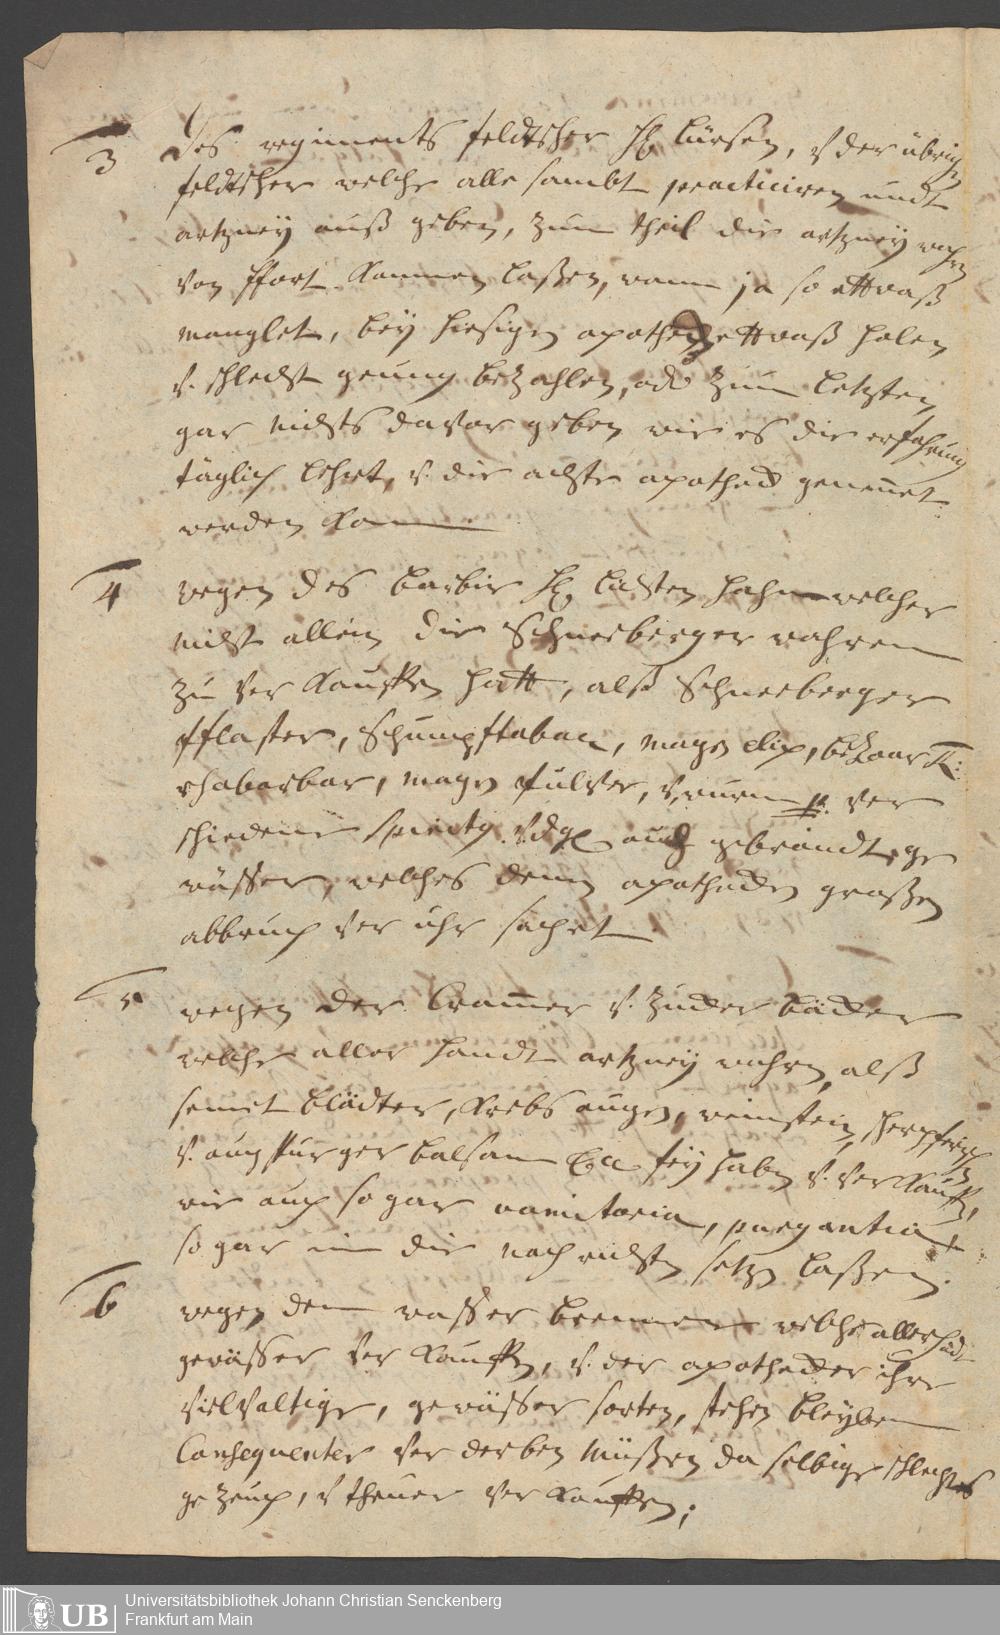 3 Des regiments feldtscher H. Lürsen, v der übrigen
feldtscher welche alle sambt practiciren undt
artzney auß geben, zum theil die artzney wahren
von ffort kommen laßen, wann ja so ettwaß
manglet, bey hiesigen apotheck ettwaß holen
v. schlecht genung bezahlen, oder zum letzten
gar nichts darvor geben wie es die erfahrung
täglich lehret, v. die achte apotheck genennet
werden kan
4 wegen des barbir H. hahn welcher
nicht allein die Schneeberger wahren
zu ver kauffen hatt, alß Schneeberger
pflaster, Schnupftabac, magen elix, bezoar
rhabarbar, magen pulver, ver
schiedene spirity vdgl auch gebrandte ge
wässer, welches denen apothecken großen
abbruch ver uhr sachet
5 wegen der Cramer v. Zucker bäcker
welche aller handt artzney wahren, alß
senet blädter, krebs augen, weinstein,
v. augspurger balsam &c fey haben v. ver kauffen,
wie auch so gar vomitoria, purgantia
so gar in die nachrichten setzen laßen.
6 wegen dem wasser brenner welche allerhandt
gewässer ver kauffen, v. der apothecker ihre
vielvaltige, gewässer sorten, stehen bleyben
Consequenter ver derben müßen da selbige schlechtes
gezeug, v theuer ver kauffen;
UB Universitätsbibliothek Johann Christian Senckenberg
Frankfurt am Main